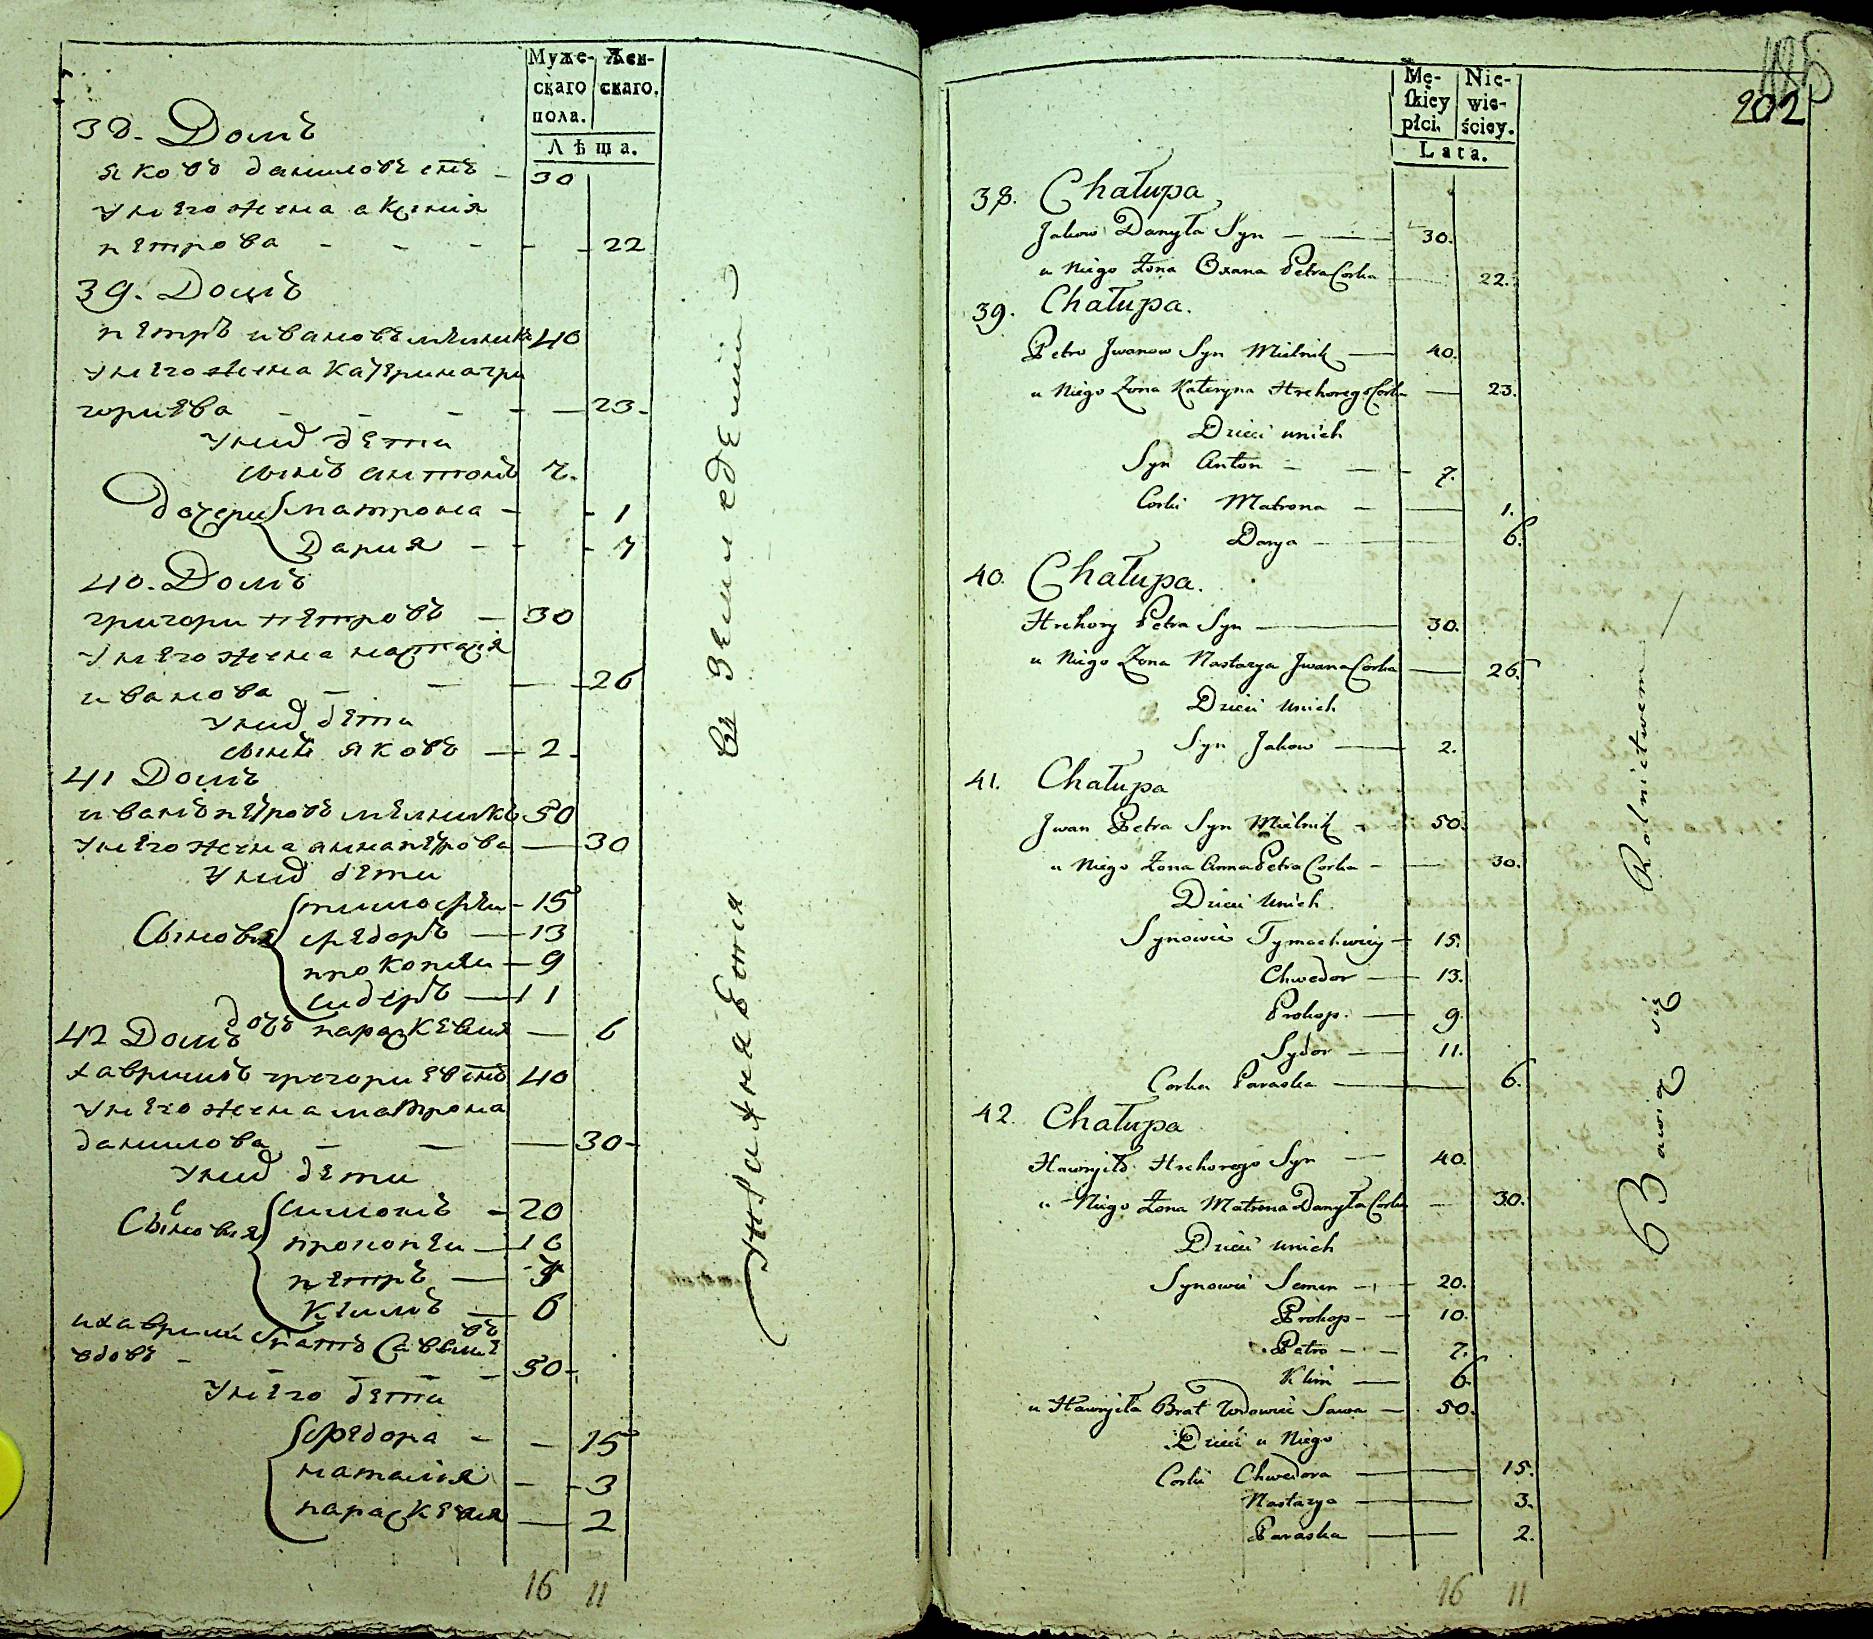 Муже- Жен-
скаго скаго.
пола.
Лѣта.
38. Домъ
яковъ даниловъ снъ - 30
унего жена аксиния
петрова - - - - 22
39. Домъ
петръ ивановъ мелникъ 40
унего жена катерина гри
гориева - - - - 23-
уних дети
сынъ антонъ 7.
дочери матрона - - 1
Дария - - - 7
40. Домъ
григори петровъ - 30
унего жена настасия
иванова - - - 26
уних дети
сынъ яковъ - 2
41 Домъ
иванъ петровъ мелникъ 50
унего жена анна петрова - 30
уних дети
тимофеи - 15
Сыновя федоръ - 13
прокопеи - 9
сидеръ - 11
дочь параскевия - 6
42 Домъ
хаврилъ григориевъ снъ 40
унего жена матрона
данилова - - - 30-
уних дети
Сыновя симонъ - 20
прокопеи - 10
петръ -
климъ - 6
вдовъ - - - - 50-
унего дети
федора - - 15
наталия - - 3
параскевия - 2
16 11
Упражняютя въ земледелии
202
Mę- Nie-
skiey wie-
płci. ściey.
Lata.
38. Chałupa
Jakow Danyła Syn - 30.
u Niego Żona Oxana Petra Corka 22.
39. Chałupa.
Petro Jwanow Syn Mielnik - 40.
u Niego Żona Kateryna Hrehorego Corka - 23.
Dzieci unich
Syn Anton - - - 7.
Corki Matrona - - 1.
Darya - - 6.
40. Chałupa.
Hrehory Petra Syn - 30.
u Niego Żona Nastazya Jwana Corka - 26.
Dzieci unich
Syn Jakow - 2.
41. Chałupa
Jwan Petra Syn Mielnik - 50.
u Niego Żona Anna Petra Corka - - 30.
Dzieci unich
Synowie Tymochwiey - 15.
Chwedor - 13.
Prokop. - 9.
Sydor - 11.
Corka Paraska - 6.
42. Chałupa
Hawryło Hrehorego Syn - 40.
u Niego Żona Matrona Danyła Corka - 30.
Dzieci unich
Synowie Semen - - 20.
Prokop - - 10.
Petro - - 7.
Klim - 6.
u Hawryła Brat Wdowiec Sawa - 50.
Dzieci u Niego
Corki Chwedora - 15.
Nastazya - 3.
Paraska - 2.
16 11
Bawią się Rolnictwem